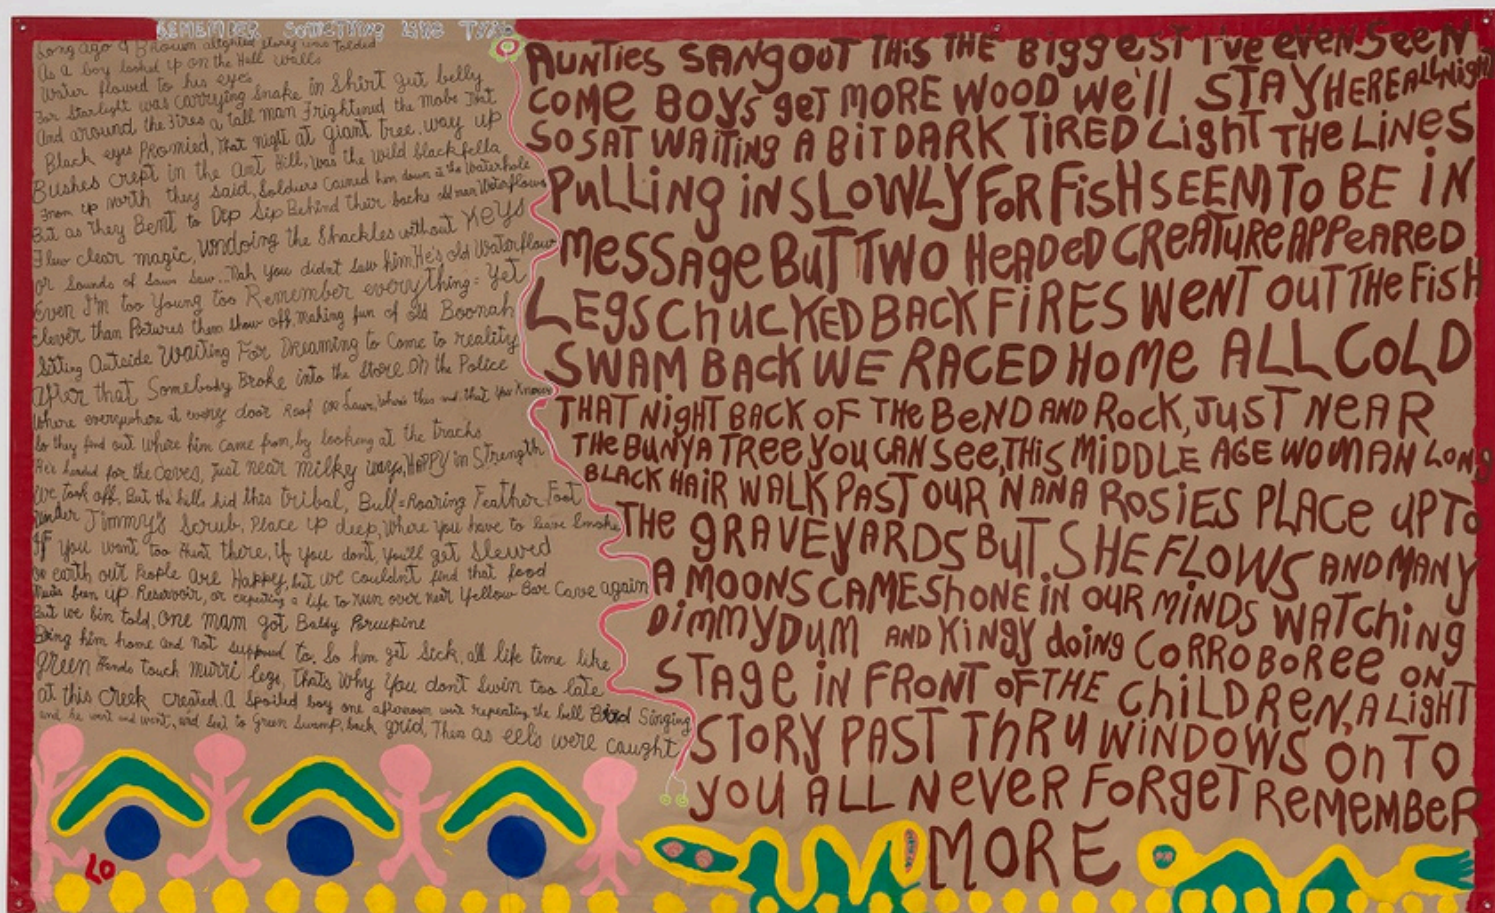 REMEMBER SOMETHING LIKE THIS
Long ago a Brown alighted story was tolded
As a boy looked up on the Hall walls
Water flowed to his eyes
For Starlight was carrying Snake in Shirt gut belly
And around the Fires a tall man Frightened the mobs That
Black eyes Promied, That night at giant tree, way up
Bushes crept in the Ant Hill, was the wild blackfella
From up north they said, Soldiers Cained him down at the Waterhole
But as they Bent to Dip Sip Behind their backs old man Waterflows
Flew clear magic, undoing the Shackles without Keys
or Sounds of Saws Saw. Nah you didn't Saw him. He's old Waterflow
Even I'm too Young too Remember everything = Yet
Clever than Pictures them show off, Making fun of old Boonah
Sitting Outside Waiting For Dreaming to Come to reality
After that Somebody Broke into the Store Oh the Police
Where everywhere at every door Roof this and that You Know
So they find out where him came from, by looking at the tracks
He's headed for the Caves, Just near milky ways, HAPPY in Strength
We took off, But the hills hid this tribal, Bull=Roaring Feather Foot
Under Jimmy's Scrub, Place up deep, Where you have to leave Smoke
IF You want too Hunt there, if you don't, you'll get Slewed
on earth our People are Happy, but we couldn't find that food
been up Reservoir, or expecting a life to run over near Yellow Bar Cave again
But we bin told, One mam got Baldy Porcupine
Bring him home and not supposed to. So him get Sick, all life time like
green hands touch murri legs, thats why You don't Swin too late
at this Creek Created. A Spoiled boy one afternoon went repeating the bell Bird Singing
and he went and went, and Sent to Green Swamp, back grid, Then as eels were caught
AUNTIES SANGOUT THIS THE BIggEST I'VE EVEN SEEN
COME BOYS geT MORE WOOD We'll STAY HERE ALL NighT
SO SAT WAITINg A BIT DARK TIRED LighT THE LINES
PULLINg IN SLOWLY FOR FISH SEEM TO BE IN
MESSAge BUT TWO HEADED CREATURE APPEARED
LEgS ChUCKED BACK FIRES WENT OUT THE FISH
SWAM BACK WE RACED HOME ALL COLD
THAT NIgHT BACK OF THE BEND AND ROCK, JUST NEAR
THE BUNYA TREE YOU CAN SEE, THIS MIDDLE AGE WOMAN LONg
BLACK HAIR WALK PAST OUR NANA ROSIES PLACE UP TO
THE gRAVEYARDS BUT SHE FLOWS AND MANY
A MOONS CAME SHONE IN OUR MINDS WATChINg
DIMMYDUM AND KINgY doINg CORROBOREE ON
STAgE IN FRONT OF THE ChILDREN, A LIgHT
STORY PAST THRU WINDOWS ONTO
YOU ALL NEVER FORgET REMEMBER
MORE
LO